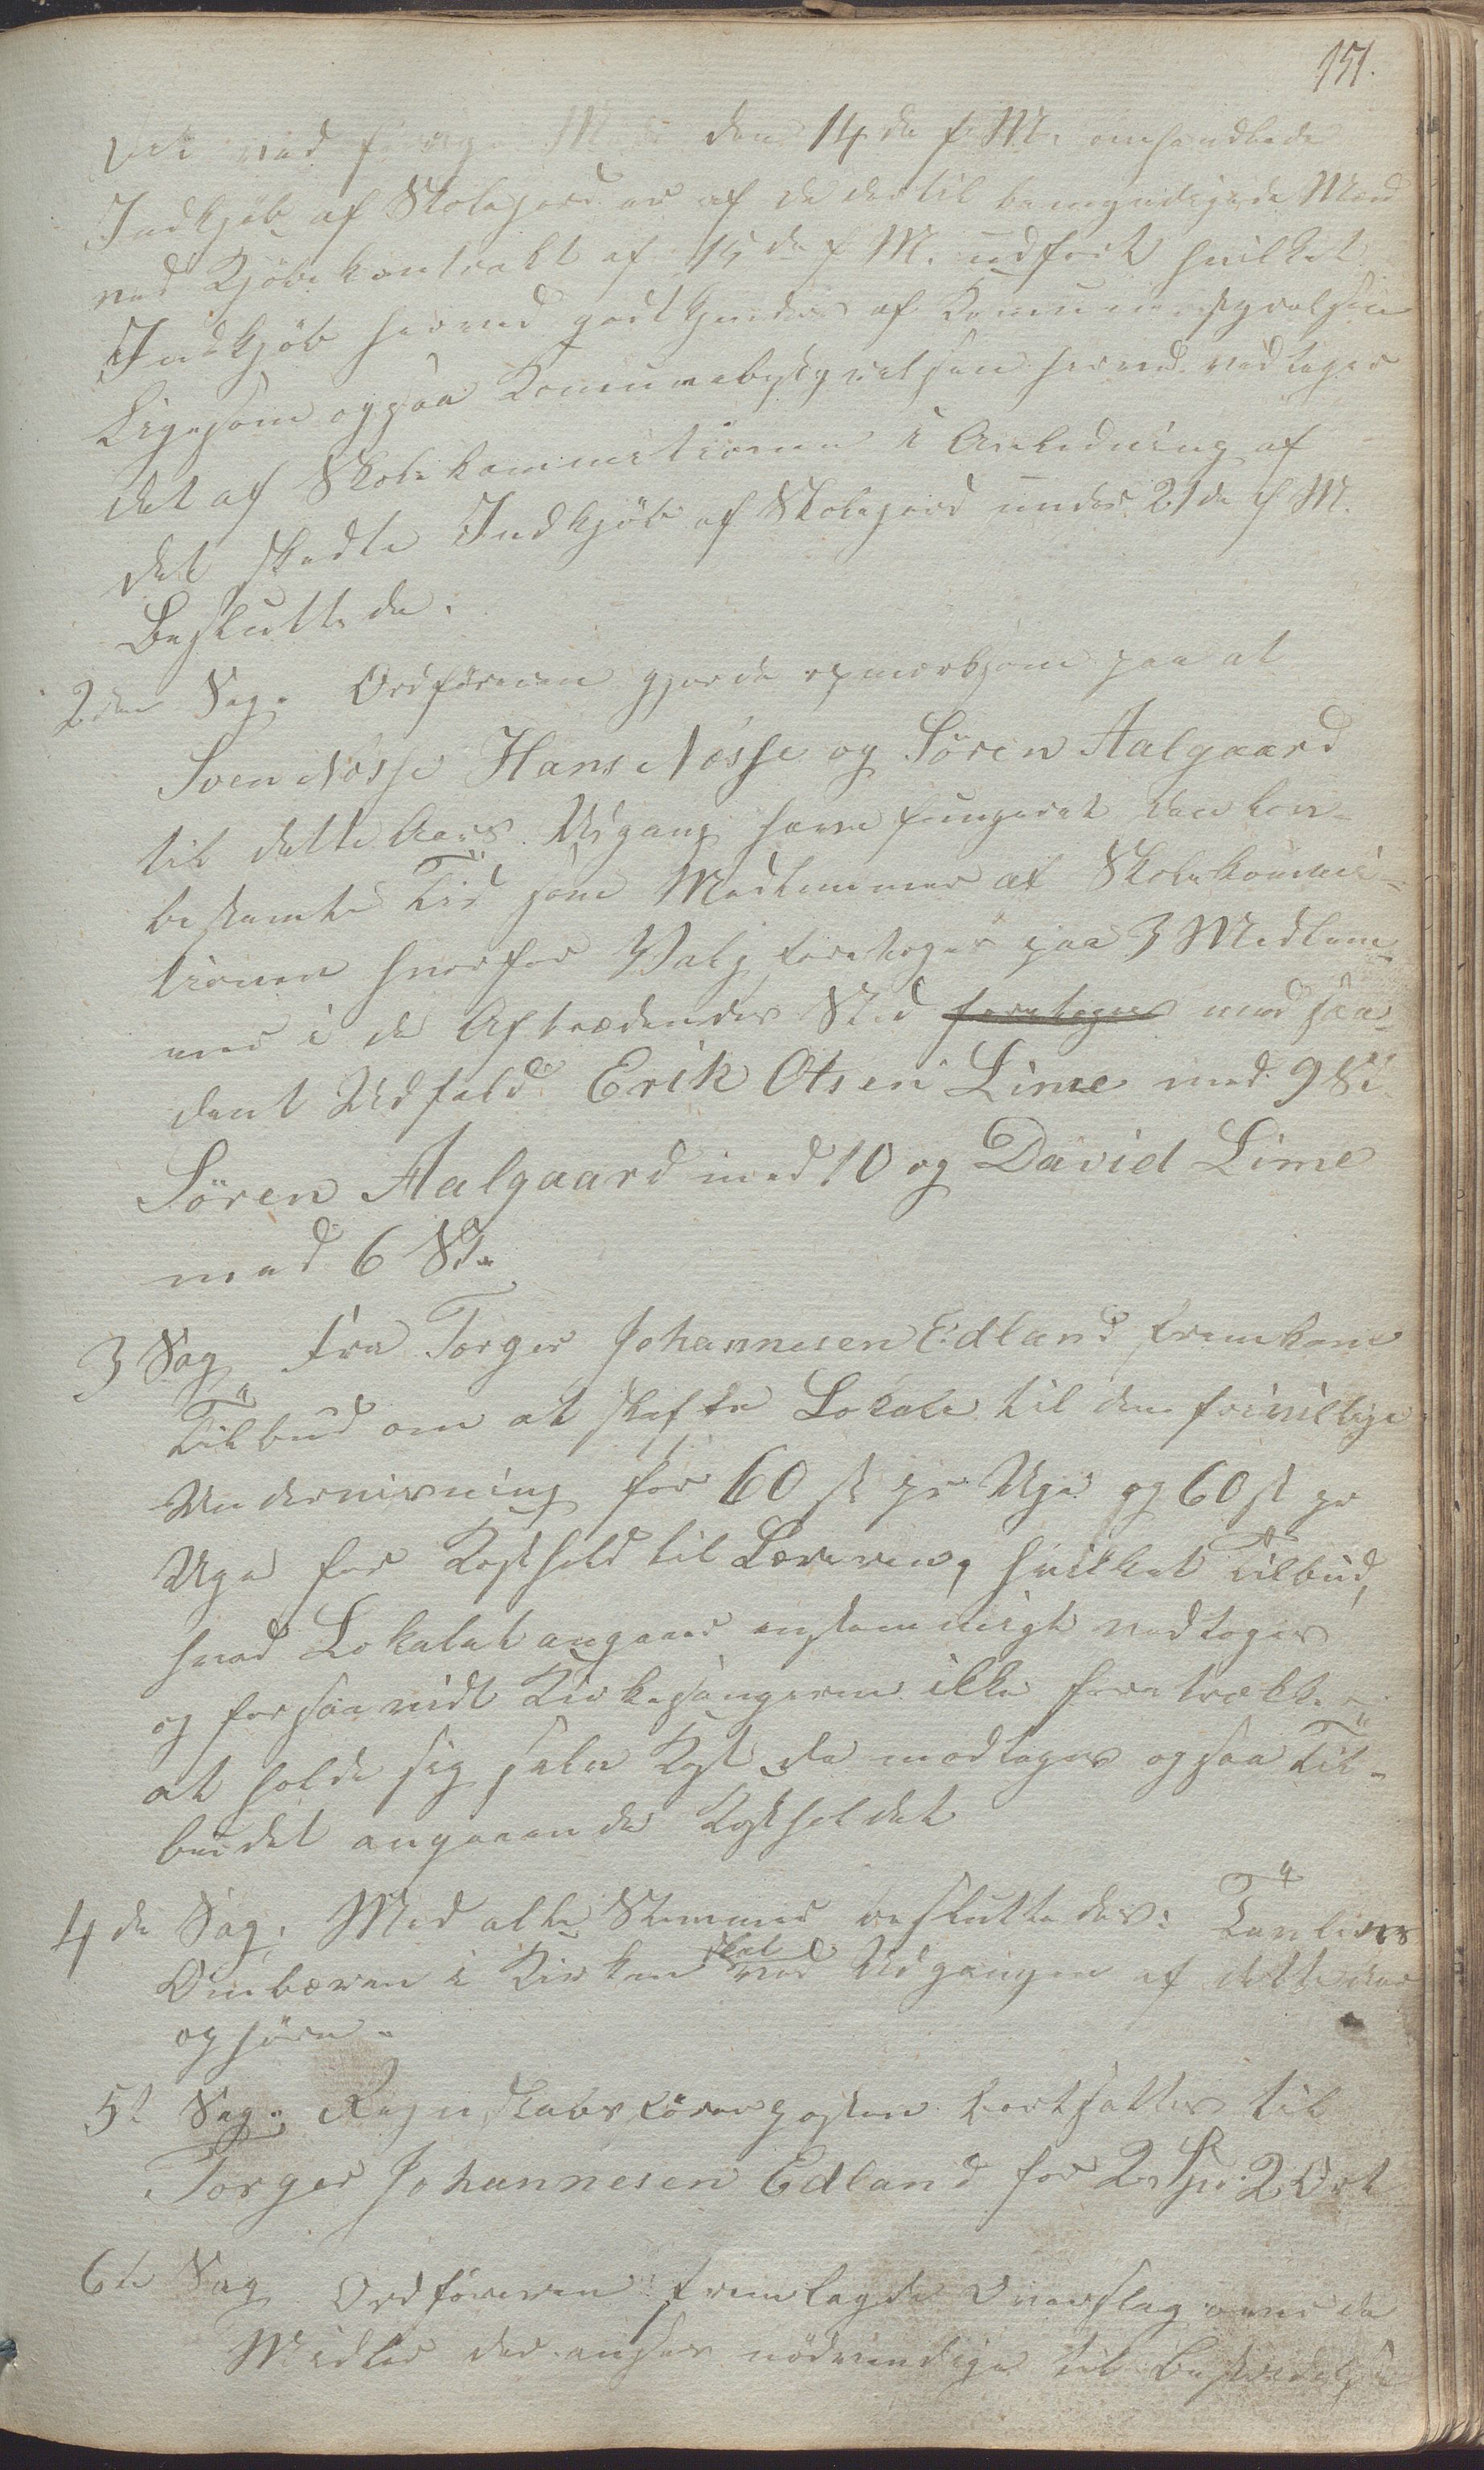 151.
Det ved forrige Møde den 14de f. M. omhandlede
Indkjöb af Skolejord er af de dertil bemyndigede Mænd
ved Kjöbekontrakt af 15de f. M. udført hvilket
Indkjöb herved godkjendes af Kommunestyrelsen
Ligesom ogsaa Kommunebestyrelsen herved vedtager
det af Skolekommissionen i Anledning af
det skedte Indkjöb af Skolejord under 21de f M.
Besluttede.
2den Sag. Ordföreren gjorde opmærksom paa at
Sven Nösse Hans Nösse og Sören Aalgaard
til dette Aars Udgang have fungeret den lov-
bestemte Tid som Medlemmer af Skolekommis-
sionen hvorfor Valg foretoges paa 3 Medlem-
mer i de Aftrædendes Sted foretoges med saa-
dant Udfald Erik Olsen Lime med 9 St.
Sören Aalgaard med 10 og David Lime
med 6 St.
3 Sag Fra Torger Johannesen Edland fremkom
Tilbud om at skaffe Lokale til den frivillige
Undervisning for 60 sk pr Uge og 60 sk pr
Uge for Kosthold til Læreren, hvilket Tilbud,
hvad Lokalet angaaer enstemmigt vedtoges
og forsaavidt Kirkesangeren ikke foretrækker
at holde sig selv Kost da modtages ogsaa Til-
budet angaaende Kostholdet
4de Sag. Med alle Stemmer besluttedes: Tavlers
Ombæren i Kirken skal ved Udgangen af dette Aar
ophöre.
5te Sag. Regnskabsförerposten bortsattes til
Torger Johannesen Edland for 2 Spd. 2 Ort
6te Sag Ordföreren fremlagde Overslag over de
Midler der ansees nödvendige til Bestridelse